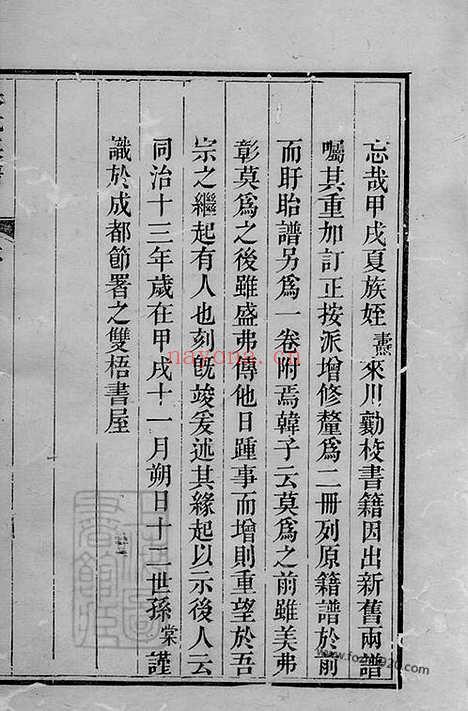 忘哉甲戌夏族姪燾來川勷校書籍因出新舊兩譜
囑其重加訂正按派增修釐為二冊列原籍譜於前
而盱眙譜另為一卷附焉韓子云莫為之前雖美弗
彰莫為之後雖盛弗傳他日踵事而增則重望於吾
宗之繼起有人也刻既竣爰述其緣起以示後人云
同治十三年歲在甲戌十一月朔日十二世孫棠謹
識於成都節署之雙梧書屋
nayona.cn
www.fozu2020.com